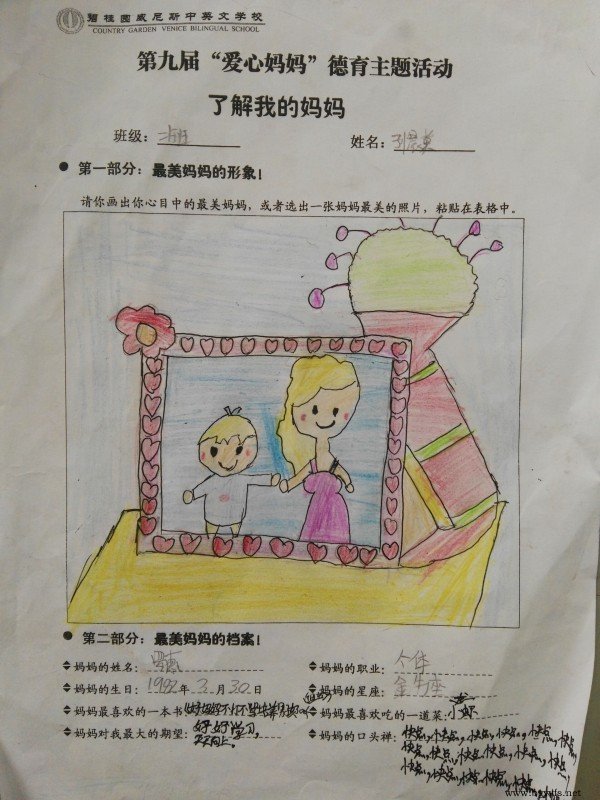 碧桂园威尼斯中英文学校
COUNTRY GARDEN VENICE BILINGUAL SCHOOL
第九届“爱心妈妈”德育主题活动
了解我的妈妈
班级： 姓名：
第一部分：最美妈妈的形象！
请你画出你心目中的最美妈妈，或者选出一张妈妈最美的照片，粘贴在表格中。
第二部分：最美妈妈的档案！
妈妈的姓名： 妈妈的职业：个体
妈妈的生日：1982年3月30日 妈妈的星座：金牛座
妈妈最喜欢的一本书 妈妈最喜欢吃的一道菜：小虾
妈妈对我最大的期望：好好学习， 妈妈的口头禅：快点，快点，快点，快点，快点，快点
天天向上。 快点，快点，快点，快点，快点，快点
快点，快点，快点，快点，快点